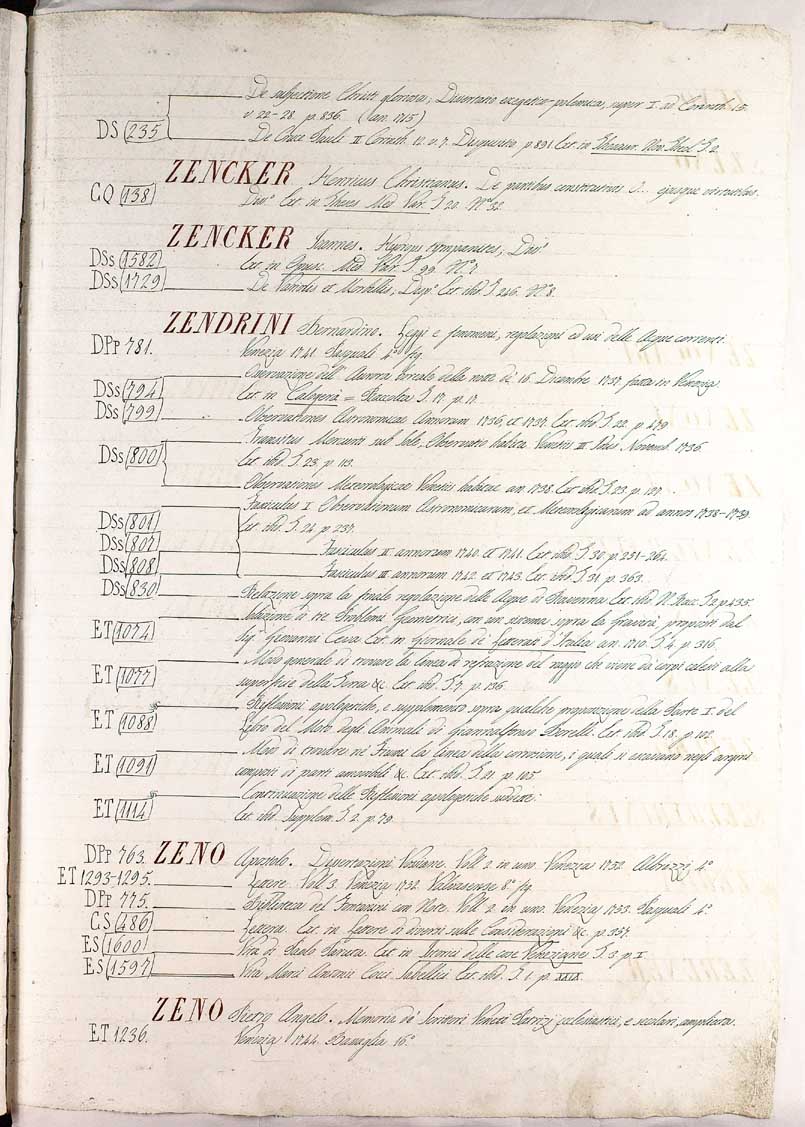 De subjectione Christi gloriosa, Dissertatio exegetico-polemica, super I. ad Corinth. 15.
v. 22-28. p. 836. (Jan. 1715)
DS 235 De Cruce Pauli II Corinth. 12. v. 7. Disputatio p. 891 Ext. in Thesaur. Nov. Theol. T. 2.
ZENCKER Henricus Christianus. De partibus constitutivis ejusque
CQ 138 Diss. Ext. in Theses Med. Var. T. 20. N.° 32.
ZENCKER Joannes. Hydrops tympanites, Diss.
DSs 1582 Ext. in Opusc. Med. Var. T. 99. N.° 7.
DSs 1729 De Variolis et Morbillis, Disp. Ext. ibid. T. 246. N.° 8.
ZENDRINI Bernardino. Leggi e fenomeni, regolazioni ed usi delle Acque correnti.
DPp 781. Venezia 1741. Pasquali 4.° fig.
Osservazione dell' Aurora boreale della notte di 16. Dicembre 1737. fatta in Venezia.
DSs 794 Ext. in Calogerà = Raccolta T. 17. p. 17.
DSs 799 Observationes Astronomicae Annorum 1736, et 1737. Ext. ibid. T. 22. p. 479.
Transitus Mercurii sub Sole, Observatio habita Venetiis III Idus Novemb. 1736.
DSs 800 Ext. ibid. T. 23. p. 113.
Observationes Meteorologicae Venetiis habitae an. 1738. Ext. ibid. T. 23. p. 127.
Fasciculus I Observationum Astronomicarum, et Meteorologicarum ad annos 1738-1739.
DSs 801 Ext. ibid. T. 24. p. 237.
DSs 807 Fasciculus II annorum 1740. et 1741. Ext. ibid. T. 30. p. 231-264.
DSs 808 Fasciculus III annorum 1742. et 1743. Ext. ibid. T. 31. p. 363.
DSs 830 Relazione sopra la finale regolazione delle Acque di Ravenna Ext. ibid. N. Racc. T. 2. p. 435.
Soluzione di tre Problemi Geometrici, con un teorema sopra la Gravità, proposti dal
ET 1074 Sig.r Giovanni Ceva Ext. in Giornale di Letterati d'Italia an. 1710. T. 4. p. 316.
Modo generale di trovare la linea di refrazione del raggio che viene da' corpi celesti alla
ET 1077 superficie della Terra &c. Ext. ibid. T. 7. p. 136.
Riflessioni apologetiche, e supplemento sopra qualche proposizione della Parte I. del
ET 1088 Libro del Moto degli Animali di Giannalfonso Borelli. Ext. ibid. T. 18. p. 112.
Modo di trovare ne' Fiumi la linea della corrosione, i quali si cavano negli argini
ET 1091 composti di parti amovibili &c. Ext. ibid. T. 21. p. 105.
Continuazione delle Riflessioni apologetiche suddette:
ET 1114 Ext. ibid. Supplem. T. 2. p. 79.
DPp 763. ZENO Apostolo. Dissertazioni Vossiane. Voll. 2. in uno. Venezia 1752. Albrizzi 4.°
ET 1293-1295. Lettere. Voll. 3. Venezia 1752. Valvasense 8.° fig.
DPp 775. Biblioteca del Fontanini con Note. Voll. 2. in uno. Venezia 1753. Pasquali 4.°
CS 486 Lettera. Ext. in Lettere di diversi sulle Considerazioni &c. p. 357.
ES 1600 Vita di Paolo Paruta. Ext. in Istorici delle cose Veneziane T. 3. p. I.
ES 1597 Vita Marci Antonii Cocci Sabellici. Ext. ibid. T. 1. p. XXIX.
ZENO Pietro Angelo. Memoria de' Scrittori Veneti Patrizj ecclesiastici, e secolari, ampliata.
ET 1236. Venezia 1744. Baseggio 16.°